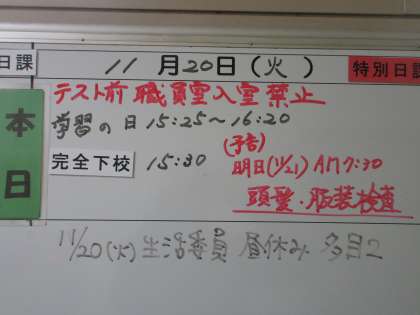 日課 11月20日(火) 特別日課
テスト前 職員室入室禁止
本日
学習の日 15:25〜16:20
完全下校 15:30
(予告)
明日(11/21) AM7:30
頭髪・服装検査
11/20(火) 生活委員 昼休み 多目2